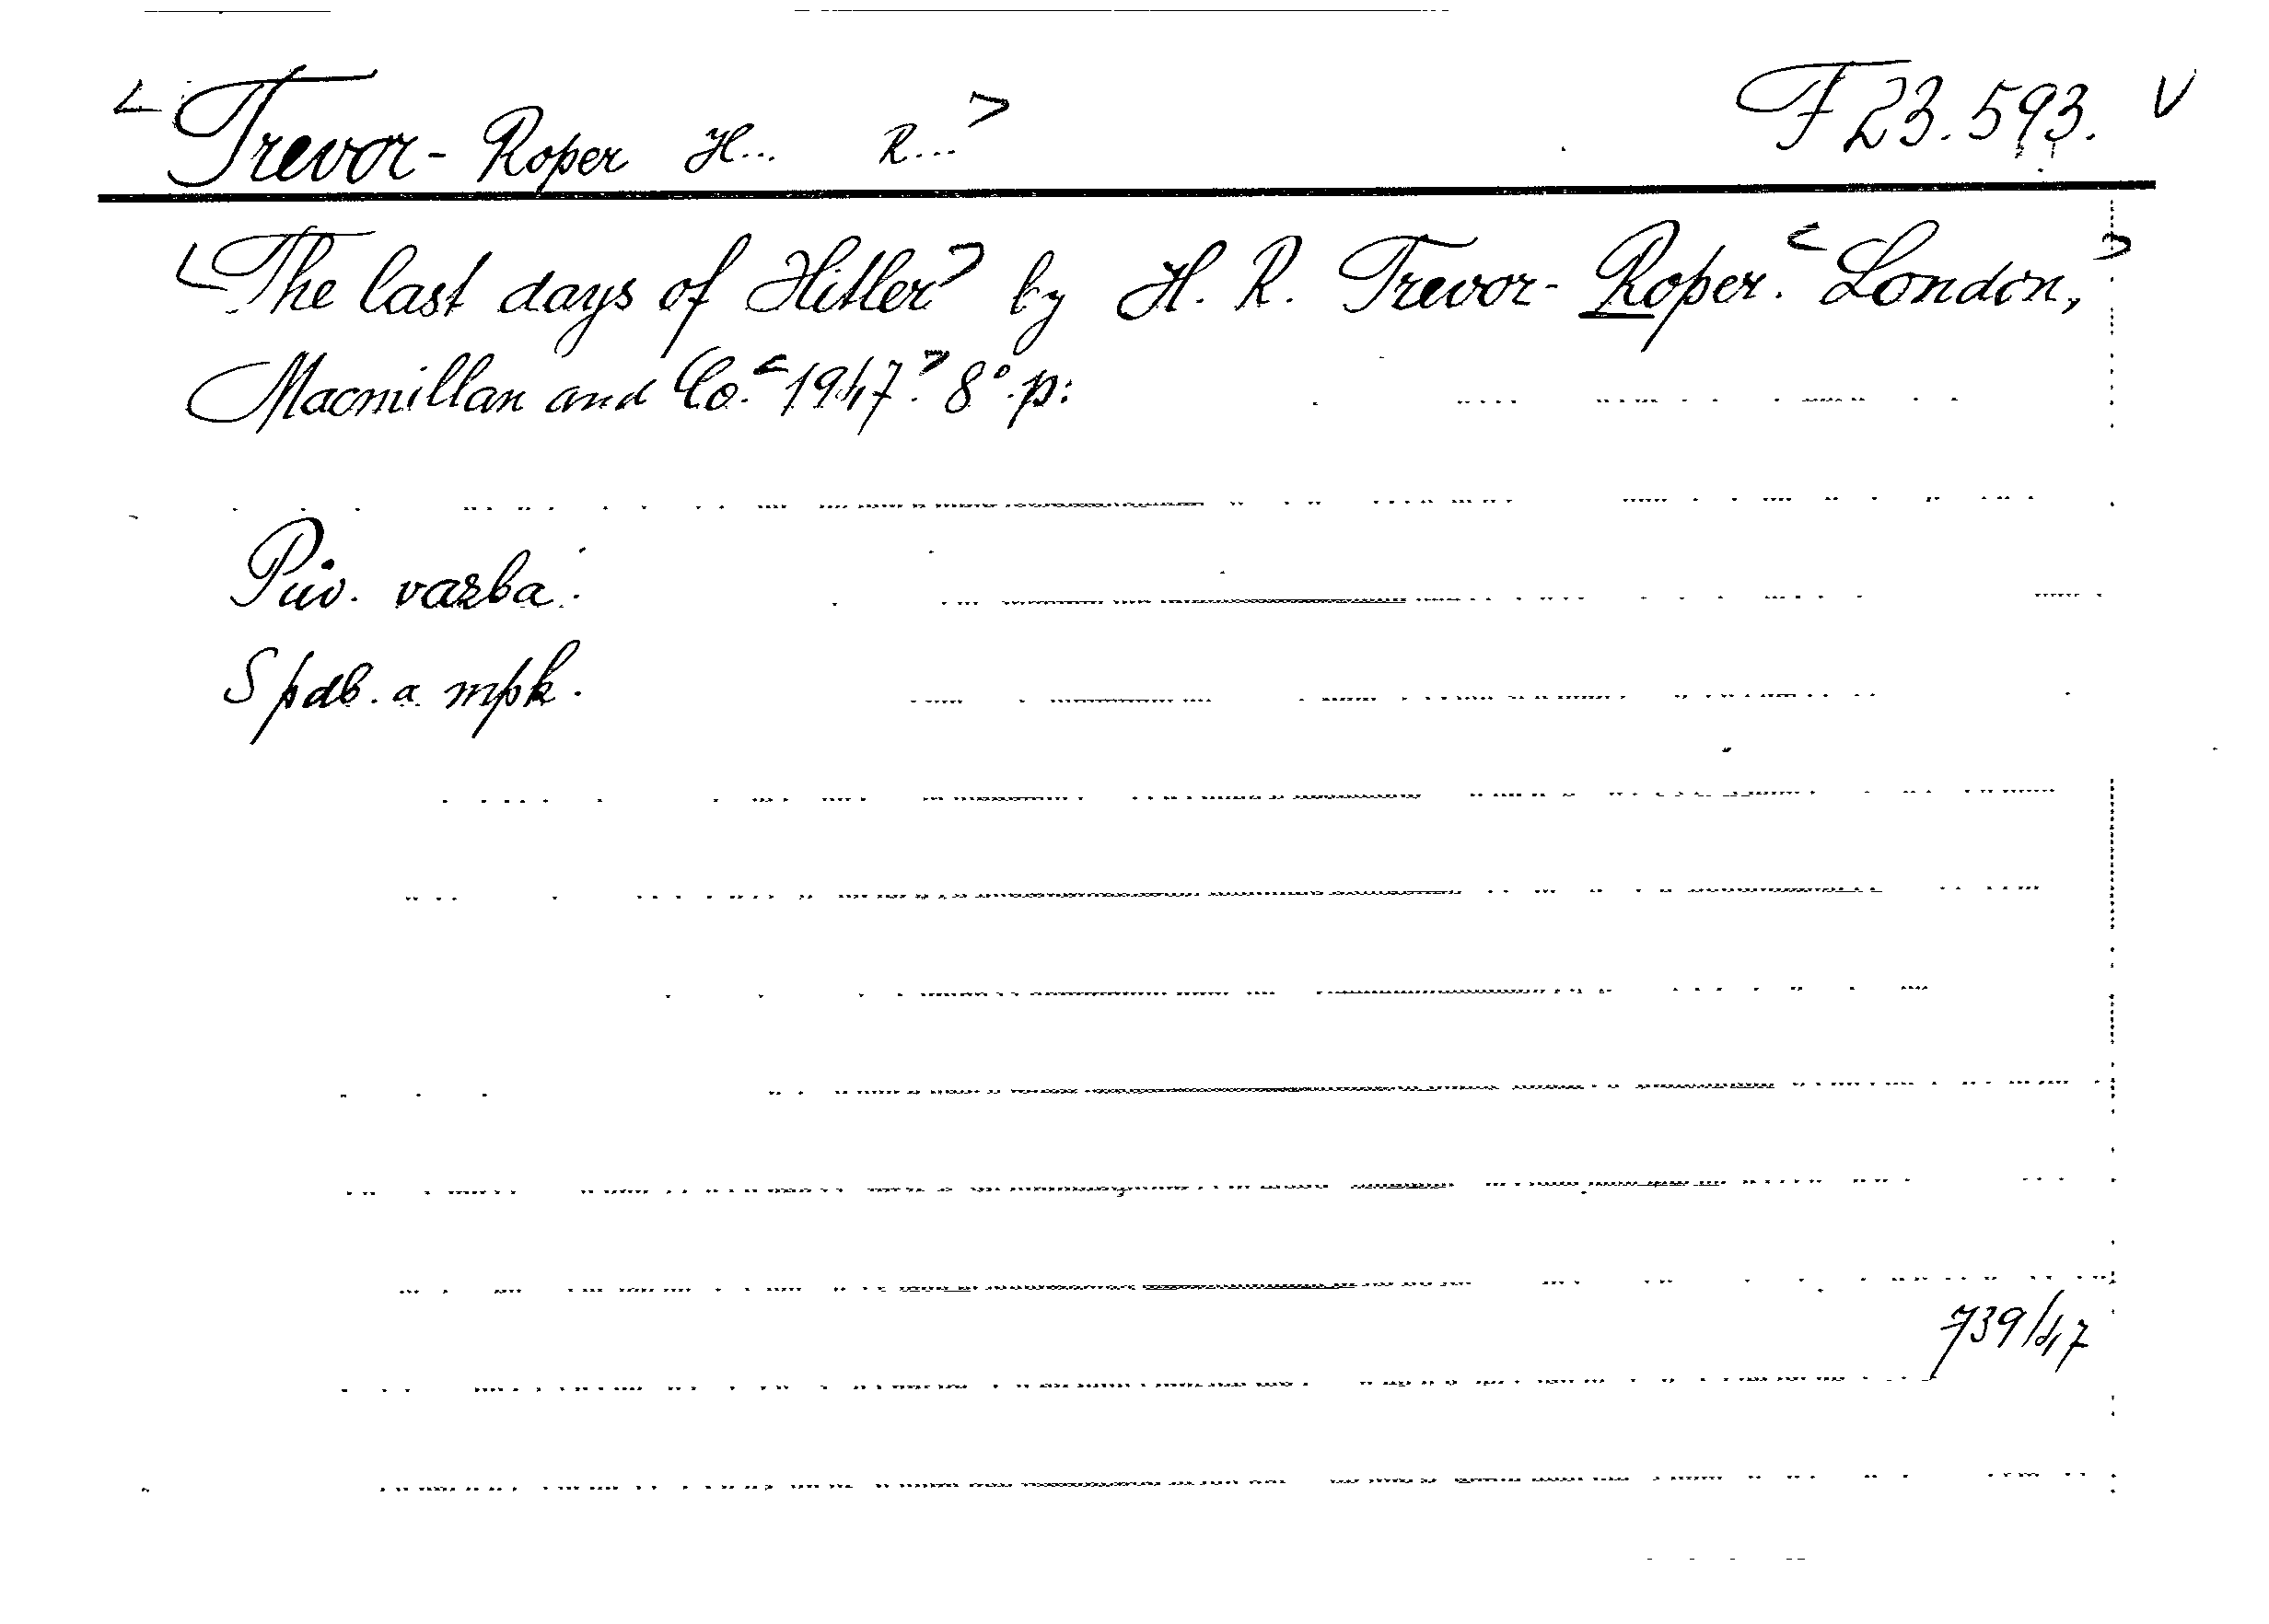 <Trevor-Roper H... R...> F 23.593. V
<The last days of Hitler> by H. R. Trevor-Roper. <London,>
Macmillan and Co. <1947.> 8°. p:
Pův. vazba.
S pdb. a mpk.
739/47